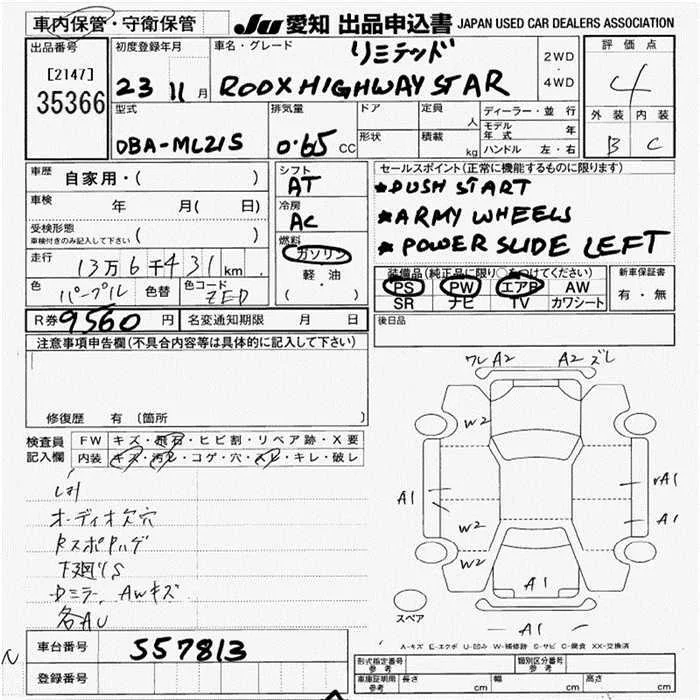 車内保管・守衛保管
JU 愛知 出品申込書 JAPAN USED CAR DEALERS ASSOCIATION
出品番号
[2147]
35366
初度登録年月
23 11 月
車名・グレード
リミテッド
ROOX HIGHWAY STAR
2WD
・
4WD
評価点
4
外装 内装
B C
型式
DBA-ML21S
排気量
0.65 CC
ドア
形状
定員
人
積載
kg
ディーラー・並行
モデル年式 年
ハンドル 左・右
車歴 自家用・( )
車検 年 月( 日)
受検形態
車検付きのみ記入して下さい ( )
走行 13万6千431km
色 パープル 色替 色コード ZED
シフト
AT
冷房
AC
燃料
ガソリン
軽・油
( )
セールスポイント(正常に機能するものに限ります)
★PUSH START
★ARMY WHEELS
★POWER SLIDE LEFT
装備品(純正品に限り○をつけてください)
PS PW エアB AW
SR ナビ TV カワシート
新車保証書
有・無
R券 9560 円 名変通知期限 月 日
後日品
注意事項申告欄(不具合内容等は具体的に記入して下さい)
修復歴 有(箇所
検査員記入欄
FW キズ・飛石・ヒビ割・リペア跡・X要
内装 キズ・汚レ・コゲ・穴・スレ・キレ・破レ
オーディオ欠穴
下廻りS
Dミラー、AWキズ
各AU
ワレA2 A2ズレ
W2
A1 W2 A1
A1
W2
A1
A1
スペア
A-キズ E-エクボ U-凹み W-補修跡 S-サビ C-腐食 XX-交換済
車台番号 557813
登録番号
型式指定番号
参考
類別区分番号
参考
車庫証明用
参考
長さ cm 幅 cm 高さ cm